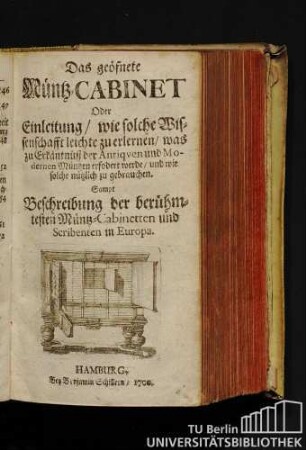 Das geöfnete
Müntz-CABINET
Oder
Einleitung/ wie solche Wis-
senschafft leichte zu erlernen/ was
zu Erkäntnuß der Antiqven und Mo-
dernen Müntzen erfodert werde/ und wie
solche nützlich zu gebrauchen.
Sampt
Beschreibung der berühm-
testen Müntz-Cabinetten und
Scribenten in Europa.
HAMBURG,
Bey Benjamin Schillern/ 1700.
TU Berlin
UNIVERSITÄTSBIBLIOTHEK